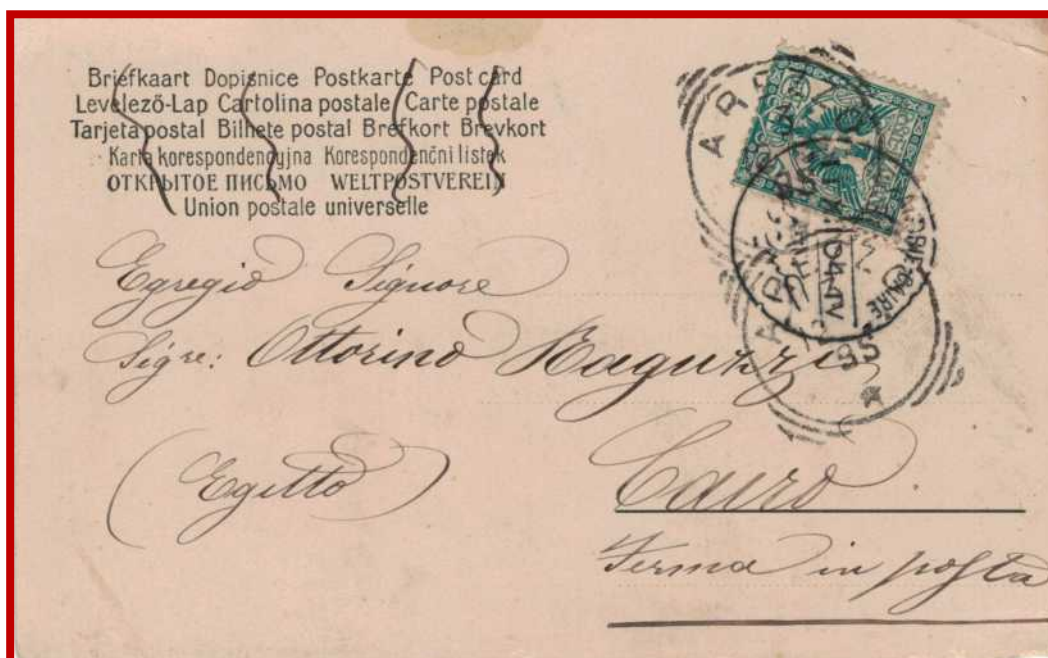 Briefkaart Dopisnice Postkarte Post card
Levelező-Lap Cartolina postale Carte postale
Tarjeta postal Bilhete postal Brefkort Brevkort
Karta korespondencyjna Korespondenční listek
ОТКРЫТОЕ ПИСЬМО WELTPOSTVEREIN
Union postale universelle
Egregio Signore
Sigre: Ottorino Raguzzi
Cairo
(Egitto)
Ferma in posta